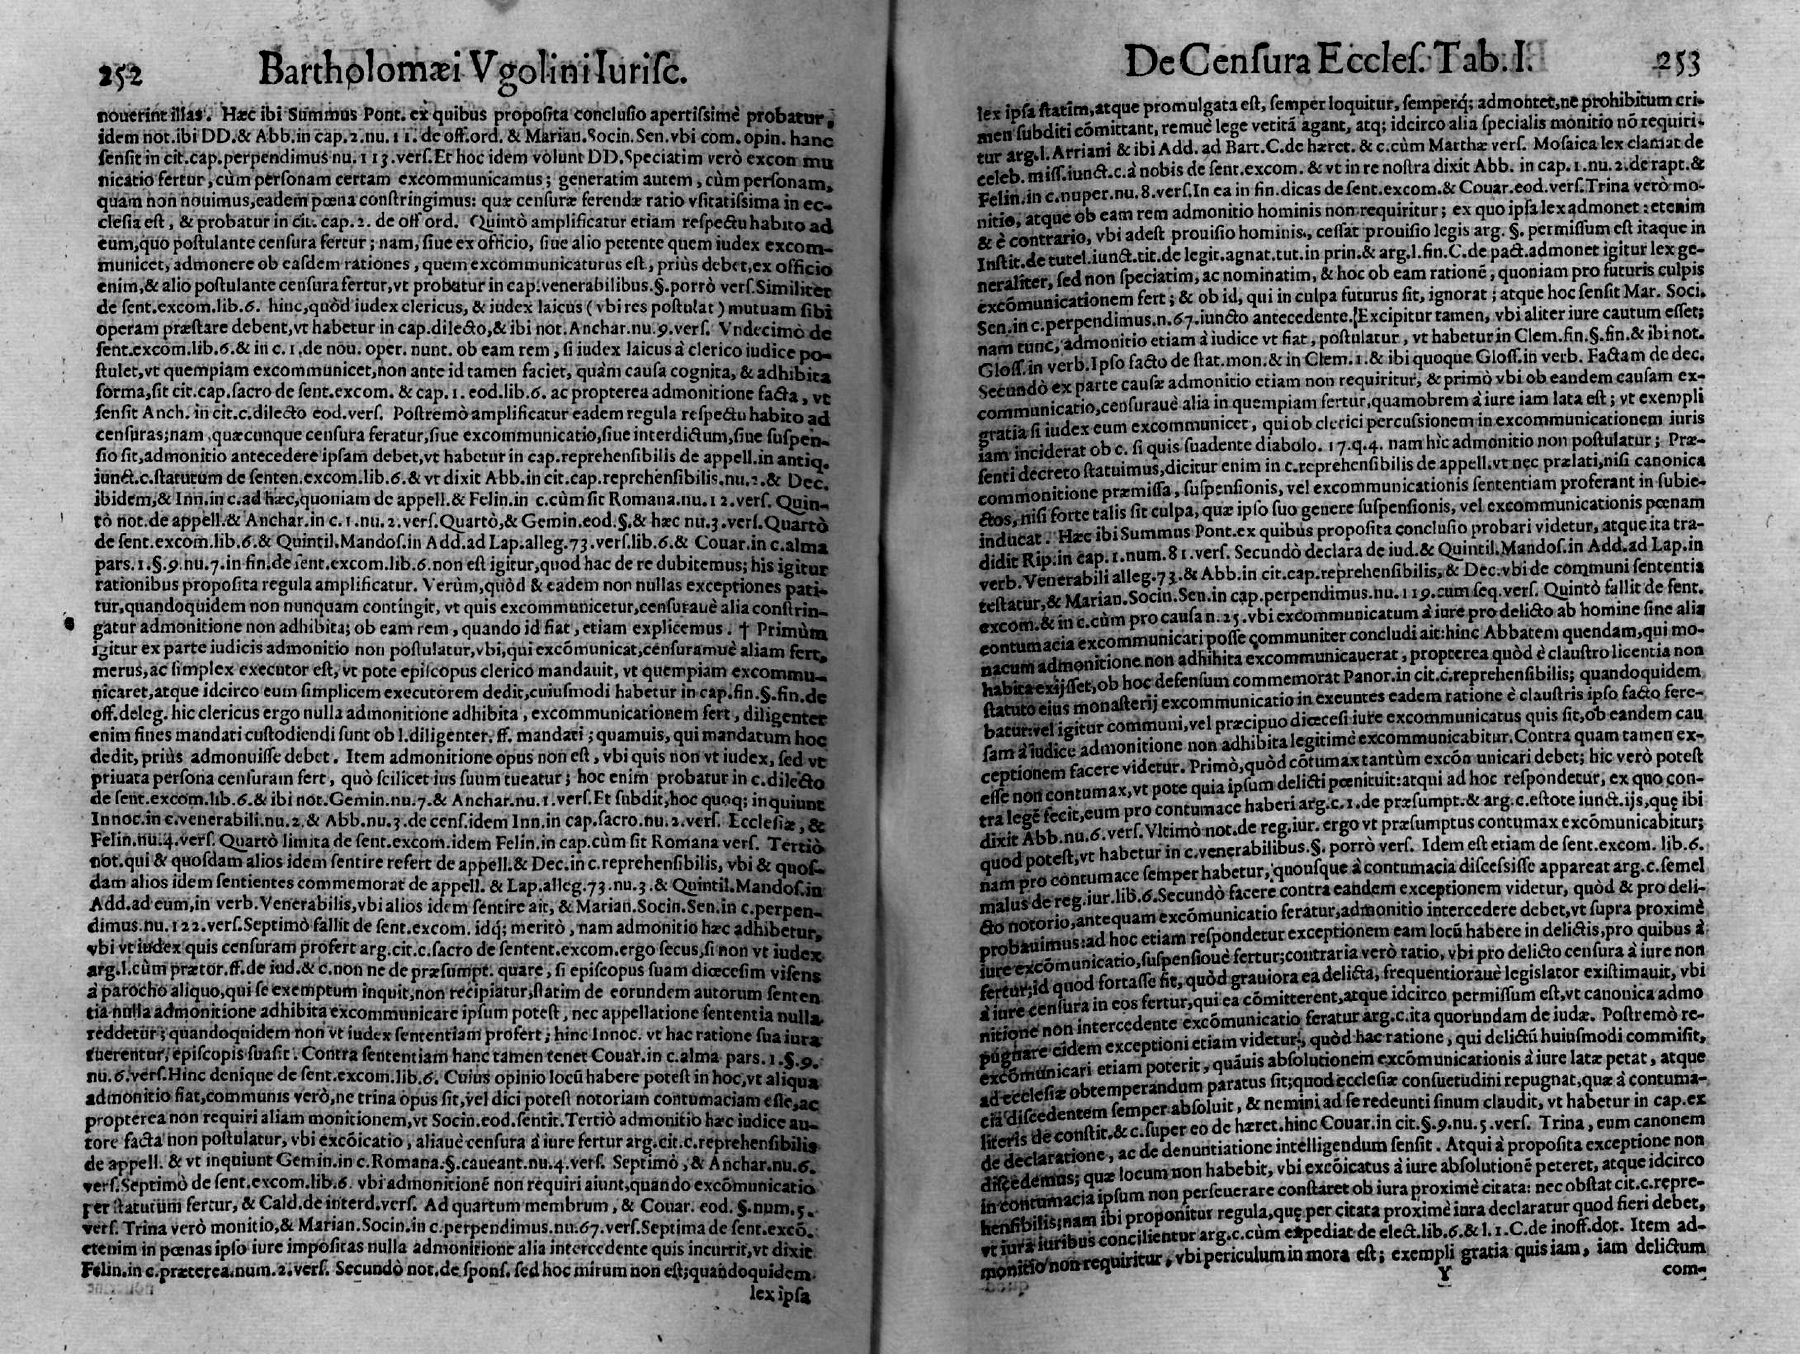 252 Bartholomæi Vgolini Iurisc.
nouerint illas. Hæc ibi Summus Pont. ex quibus proposita conclusio apertissimè probatur,
idem not. ibi DD. & Abb. in cap. 2. nu. 11. de off. ord. & Marian. Socin. Sen. vbi com. opin. hanc
sensit in cit. cap. perpendimus nu. 113. vers. Et hoc idem volunt DD. Speciatim verò excon mu
nicatio fertur, cùm personam certam excommunicamus; generatim autem, cùm personam,
quam non nouimus, eadem pœna constringimus: quæ censuræ ferendæ ratio vsitatissima in ec-
clesia est, & probatur in cit. cap. 2. de off ord. Quintò amplificatur etiam respectu habito ad
eum, quo postulante censura fertur; nam, siue ex officio, siue alio petente quem iudex excom-
municet, admonere ob easdem rationes, quem excommunicaturus est, priùs debet, ex officio
enim, & alio postulante censura fertur, vt probatur in cap. venerabilibus. §. porrò vers. Similiter
de sent. excom. lib. 6. hinc, quòd iudex clericus, & iudex laicus (vbi res postulat) mutuam sibi
operam præstare debent, vt habetur in cap. dilecto, & ibi not. Anchar. nu. 9. vers. Vndecimò de
sent. excom. lib. 6. & in c. 1. de nou. oper. nunt. ob eam rem, si iudex laicus à clerico iudice po-
stulet, vt quempiam excommunicet, non ante id tamen faciet, quàm causa cognita, & adhibita
forma, sit cit. cap. sacro de sent. excom. & cap. 1. eod. lib. 6. ac propterea admonitione facta, vt
sensit Anch. in cit. c. dilecto eod. vers. Postremò amplificatur eadem regula respectu habito ad
censuras; nam, quæcunque censura feratur, siue excommunicatio, siue interdictum, siue suspen-
sio sit, admonitio antecedere ipsam debet, vt habetur in cap. reprehensibilis de appell. in antiq.
iunct. c. statutum de senten. excom. lib. 6. & vt dixit Abb. in cit. cap. reprehensibilis. nu. 2. & Dec.
ibidem, & Inn. in c. ad hæc, quoniam de appell. & Felin. in c. cùm sit Romana. nu. 12. vers. Quin-
tò not. de appell. & Anchar. in c. 1. nu. 2. vers. Quartò, & Gemin. eod. §. & hæc nu. 3. vers. Quartò
de sent. excom. lib. 6. & Quintil. Mandos. in Add. ad Lap. alleg. 73. vers. lib. 6. & Couar. in c. alma
pars. 1. §. 9. nu. 7. in fin. de sent. excom. lib. 6. non est igitur, quod hac de re dubitemus; his igitur
rationibus proposita regula amplificatur. Verùm, quòd & eadem non nullas exceptiones pati-
tur, quandoquidem non nunquam contingit, vt quis excommunicetur, censurauè alia constrin-
gatur admonitione non adhibita; ob eam rem, quando id fiat, etiam explicemus. † Primùm
igitur ex parte iudicis admonitio non postulatur, vbi, qui excōmunicat, censuramuè aliam fert,
merus, ac simplex executor est, vt pote episcopus clerico mandauit, vt quempiam excommu-
nicaret, atque idcirco eum simplicem executorem dedit, cuiusmodi habetur in cap. fin. §. fin. de
off. deleg. hic clericus ergo nulla admonitione adhibita, excommunicationem fert, diligenter
enim fines mandati custodiendi sunt ob l. diligenter. ff. mandati; quamuis, qui mandatum hoc
dedit, priùs admonuisse debet. Item admonitione opus non est, vbi quis non vt iudex, sed vt
priuata persona censuram fert, quò scilicet ius suum tueatur; hoc enim probatur in c. dilecto
de sent. excom. lib. 6. & ibi not. Gemin. nu. 7. & Anchar. nu. 1. vers. Et subdit, hoc quoq; inquiunt
Innoc. in c. venerabili. nu. 2. & Abb. nu. 3. de cens. idem Inn. in cap. sacro. nu. 2. vers. Ecclesiæ, &
Felin. nu. 4. vers. Quartò limita de sent. excom. idem Felin. in cap. cùm sit Romana vers. Tertiò
not. qui & quosdam alios idem sentire refert de appell. & Dec. in c. reprehensibilis, vbi & quos-
dam alios idem sentientes commemorat de appell. & Lap. alleg. 73. nu. 3. & Quintil. Mandos. in
Add. ad eum, in verb. Venerabilis, vbi alios idem sentire ait, & Marian. Socin. Sen. in c. perpen-
dimus. nu. 122. vers. Septimò fallit de sent. excom. idq; meritò, nam admonitio hæc adhibetur,
vbi vt iudex quis censuram profert arg. cit. c. sacro de sentent. excom. ergo secus, si non vt iudex
arg. l. cùm prætor. ff. de iud. & c. non ne de præsumpt. quare, si episcopus suam diœcesim visens
à parocho aliquo, qui se exemptum inquit, non recipiatur, statim de eorundem autorum senten
tia nulla admonitione adhibita excommunicare ipsum potest, nec appellatione sententia nulla
reddetur; quandoquidem non vt iudex sententiam profert; hinc Innoc. vt hac ratione sua iura
tuerentur, episcopis suasit. Contra sententiam hanc tamen tenet Couar. in c. alma pars. 1. §. 9.
nu. 6. vers. Hinc denique de sent. excom. lib. 6. Cuius opinio locū habere potest in hoc, vt aliqua
admonitio fiat, communis verò, ne trina opus sit, vel dici potest notoriam contumaciam esse, ac
propterea non requiri aliam monitionem, vt Socin. eod. sentit. Tertiò admonitio hæc iudice au-
tore facta non postulatur, vbi excōicatio, aliauè censura à iure fertur arg. cit. c. reprehensibilis
de appell. & vt inquiunt Gemin. in c. Romana. §. caueant. nu. 4. vers. Septimò, & Anchar. nu. 6.
vers. Septimò de sent. excom. lib. 6. vbi admonitionē non requiri aiunt, quando excōmunicatio
per statutum fertur, & Cald. de interd. vers. Ad quartum membrum, & Couar. eod. §. num. 5.
vers. Trina verò monitio, & Marian. Socin. in c. perpendimus. nu. 67. vers. Septima de sent. excō.
etenim in pœnas ipso iure impositas nulla admonitione alia intercedente quis incurrit, vt dixit
Felin. in c. præterea. num. 2. vers. Secundò not. de spons. sed hoc mirum non est; quandoquidem
lex ipsa
De Censura Eccles. Tab. I. 253
lex ipsa statim, atque promulgata est, semper loquitur, semperq; admonet, ne prohibitum cri-
men subditi cōmittant, remuè lege vetitā agant, atq; idcirco alia specialis monitio nō requiri-
tur arg. l. Arriani & ibi Add. ad Bart. C. de hæret. & c. cùm Marthæ vers. Mosaica lex clamat de
celeb. miss. iunct. c. à nobis de sent. excom. & vt in re nostra dixit Abb. in cap. 1. nu. 2. de rapt. &
Felin. in c. nuper. nu. 8. vers. In ea in fin. dicas de sent. excom. & Couar. eod. vers. Trina verò mo-
nitio, atque ob eam rem admonitio hominis non requiritur; ex quo ipsa lex admonet: etenim
& è contrario, vbi adest prouisio hominis, cessat prouisio legis arg. §. permissum est itaque in
Instit. de tutel. iunct. tit. de legit. agnat. tut. in prin. & arg. l. fin. C. de pact. admonet igitur lex ge-
neraliter, sed non speciatim, ac nominatim, & hoc ob eam rationē, quoniam pro futuris culpis
excōmunicationem fert; & ob id, qui in culpa futurus sit, ignorat; atque hoc sensit Mar. Soci.
Sen. in c. perpendimus. n. 67. iuncto antecedente. Excipitur tamen, vbi aliter iure cautum esset;
nam tunc, admonitio etiam à iudice vt fiat, postulatur, vt habetur in Clem. fin. §. fin. & ibi not.
Gloss. in verb. Ipso facto de stat. mon. & in Clem. 1. & ibi quoque Gloss. in verb. Factam de dec.
Secundò ex parte causæ admonitio etiam non requiritur, & primò vbi ob eandem causam ex-
communicatio, censurauè alia in quempiam fertur, quamobrem à iure iam lata est; vt exempli
gratia si iudex eum excommunicet, qui ob clerici percussionem in excommunicationem iuris
iam inciderat ob c. si quis suadente diabolo. 17. q. 4. nam hic admonitio non postulatur; Præ-
senti decreto statuimus, dicitur enim in c. reprehensibilis de appell. vt nec prælati, nisi canonica
commonitione præmissa, suspensionis, vel excommunicationis sententiam proferant in subie-
ctos, nisi forte talis sit culpa, quæ ipso suo genere suspensionis, vel excommunicationis pœnam
inducat. Hæc ibi Summus Pont. ex quibus proposita conclusio probari videtur, atque ita tra-
didit Rip. in cap. 1. num. 81. vers. Secundò declara de iud. & Quintil. Mandos. in Add. ad Lap. in
verb. Venerabili alleg. 73. & Abb. in cit. cap. reprehensibilis, & Dec. vbi de communi sententia
testatur, & Marian. Socin. Sen. in cap. perpendimus. nu. 119. cum seq. vers. Quintò fallit de sent.
excom. & in c. cùm pro causa n. 25. vbi excommunicatum à iure pro delicto ab homine sine alia
contumacia excommunicari posse communiter concludi ait: hinc Abbatem quendam, qui mo-
nacum admonitione non adhihita excommunicauerat, propterea quòd è claustro licentia non
habita exijsset, ob hoc defensum commemorat Panor. in cit. c. reprehensibilis; quandoquidem
statuto eius monasterij excommunicatio in exeuntes eadem ratione è claustris ipso facto fere-
batur: vel igitur communi, vel præcipuo diœcesi iure excommunicatus quis sit, ob eandem cau
sam à iudice admonitione non adhibita legitimè excommunicabitur. Contra quam tamen ex-
ceptionem facere videtur. Primò, quòd cōtumax tantùm excōn unicari debet; hic verò potest
esse non contumax, vt pote quia ipsum delicti pœnituit: atqui ad hoc respondetur, ex quo con-
tra legē fecit, eum pro contumace haberi arg. c. 1. de præsumpt. & arg. c. estote iunct. ijs, quę ibi
dixit Abb. nu. 6. vers. Vltimò not. de reg. iur. ergo vt præsumptus contumax excōmunicabitur;
quod potest, vt habetur in c. venerabilibus. §. porrò vers. Idem est etiam de sent. excom. lib. 6.
nam pro contumace semper habetur, quousque à contumacia discessisse appareat arg. c. semel
malus de reg. iur. lib. 6. Secundò facere contra eandem exceptionem videtur, quòd & pro deli-
cto notorio, antequam excōmunicatio feratur, admonitio intercedere debet, vt supra proximè
probauimus: ad hoc etiam respondetur exceptionem eam locū habere in delictis, pro quibus à
iure excōmunicatio, suspensiouè fertur; contraria verò ratio, vbi pro delicto censura à iure non
fertur; id quod fortasse fit, quòd grauiora ea delicta, frequentioraue legislator existimauit, vbi
à iure censura in eos fertur, qui ea cōmitterent, atque idcirco permissum est, vt canonica admo
nitione non intercedente excōmunicatio feratur arg. c. ita quorundam de iudæ. Postremò re-
pugnare eidem exceptioni etiam videtur, quòd hac ratione, qui delictū huiusmodi commisit,
excōmunicari etiam poterit, quāuis absolutionem excōmunicationis à iure latæ petat, atque
ad ecclesiæ obtemperandum paratus sit; quod ecclesiæ consuetudini repugnat, quæ à contuma-
cia discedentem semper absoluit, & nemini ad se redeunti sinum claudit, vt habetur in cap. ex
literis de constit. & c. super eo de hæret. hinc Couar. in cit. §. 9. nu. 5. vers. Trina, eum canonem
de declaratione, ac de denuntiatione intelligendum sensit. Atqui à proposita exceptione non
discedemus; quæ locum non habebit, vbi excōicatus à iure absolutionē peteret, atque idcirco
in contumacia ipsum non perseuerare constaret ob iura proximè citata: nec obstat cit. c. repre-
hensibilis; nam ibi proponitur regula, quę per citata proximè iura declaratur quod fieri debet,
vt iura iuribus concilientur arg. c. cùm expediat de elect. lib. 6. & l. 1. C. de inoff. dot. Item ad-
monitio non requiritur, vbi periculum in mora est; exempli gratia quis iam, iam delictum
Y com-